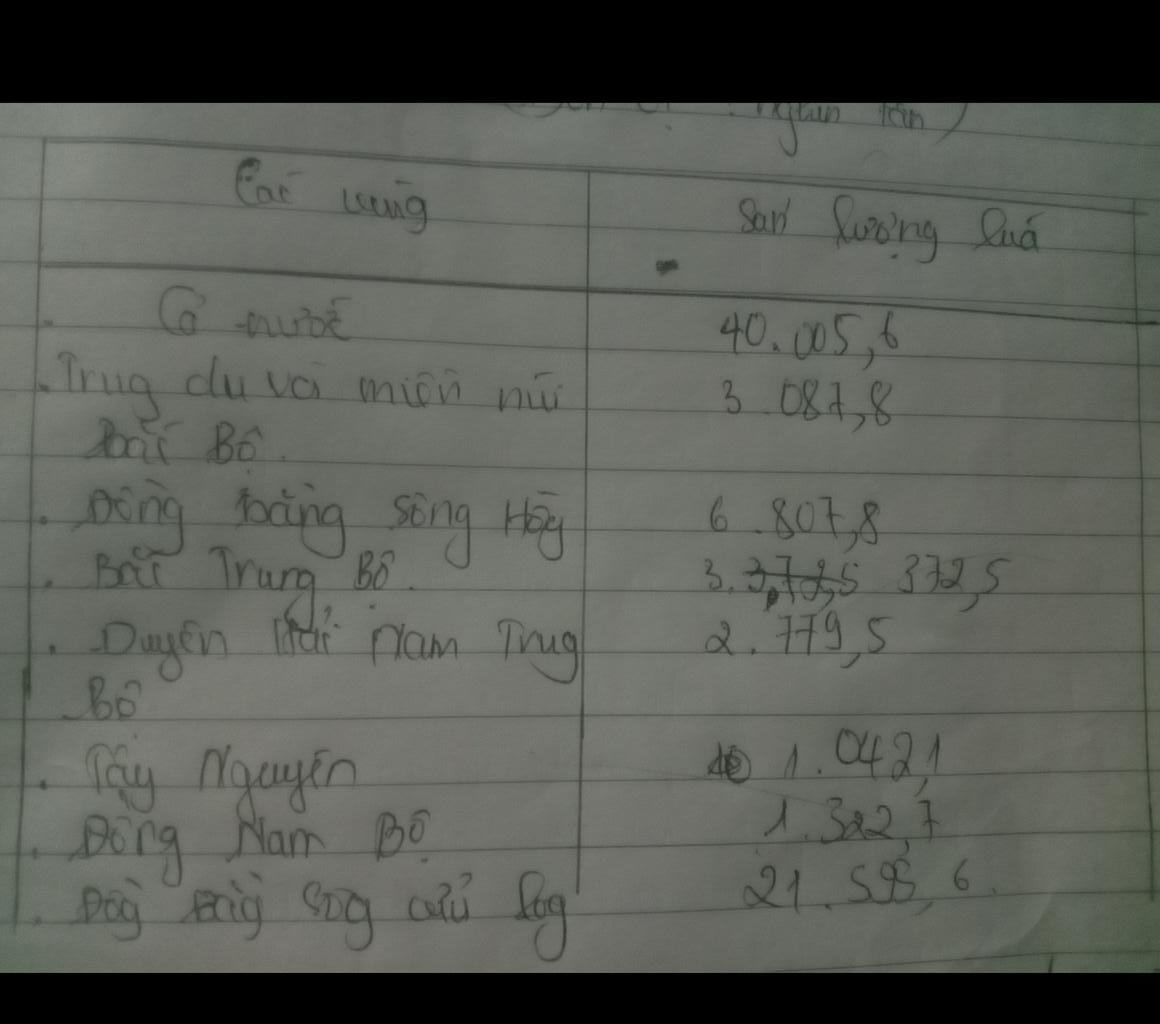 ngàn tấn)
Các vùng sản lượng luá
Cả nước 40.005,6
Trug du và miền núi 3.087,8
Bắc Bộ.
Đồng bằng sông Hồg 6.807,8
Bắc Trung Bộ. 3.372,5
Duyên Hải Nam Trug 2.779,5
Bộ
Tây Nguyên 1.042,1
Đông Nam Bộ 1.322,7
Đồg bằg sôg cửu log 21.595,6.